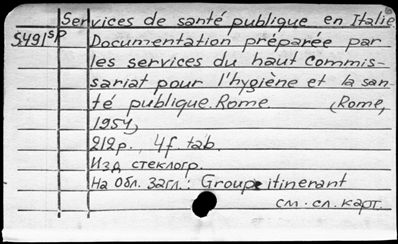 Services de santé publique en Italie.
S491sp Documentation préparée par
les services du haut Commis-
sariat pour l'hygiène et la san-
té publique. Rome. (Rome,
1954)
212p., 4f. tab.
Изд. стеклогр.
На Обл. Загл.: Group itinerant
см. сл. карт.